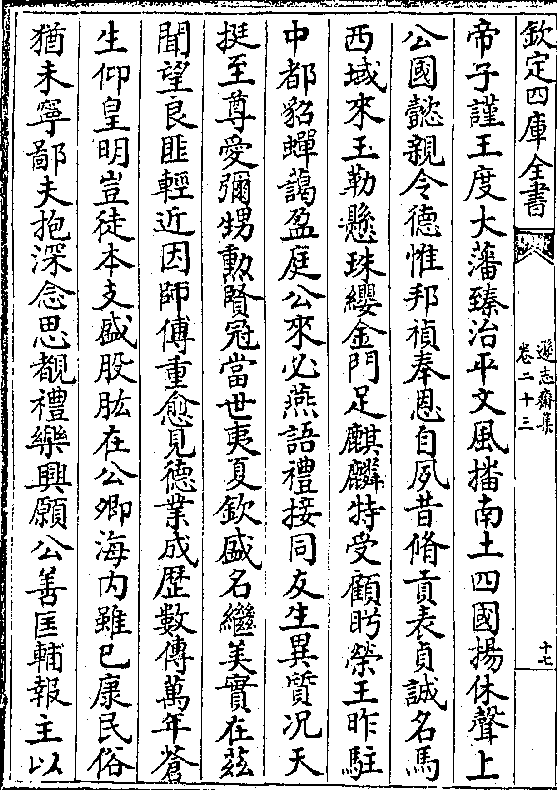 欽定四庫全書
遜志齋集
卷二十三
十七
帝子謹王度大藩臻治平文風播南土四國揚休聲上
公國懿親令德惟邦禎奉恩自夙昔脩貢表貞誠名馬
西域來玉勒懸珠纓金門足麒麟特受顧眄榮王昨駐
中都貂蟬藹盈庭公來必燕語禮接同友生異質况天
挺至尊愛彌甥勲賢冠當世夷夏欽盛名繼美實在兹
聞望良匪輕近因師傅重愈見德業成歴數傳萬年蒼
生仰皇明豈徒本支盛股肱在公卿海内雖已康民俗
猶未寧鄙夫抱深念思覩禮樂興願公善匡輔報主以